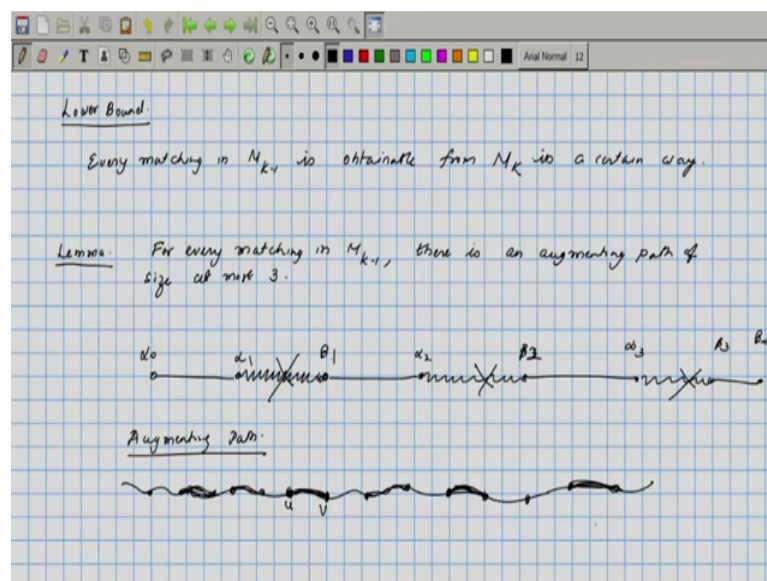 T Arial Normal 12
Lower Bound.
Every matching in M_{k-1} is obtainable from M_k in a certain way.
Lemma. For every matching in M_{k-1}, there is an augmenting path of
size at most 3.
α_0 α_1 β_1 α_2 β_2 α_3 β_3
Augmenting Path.
u v